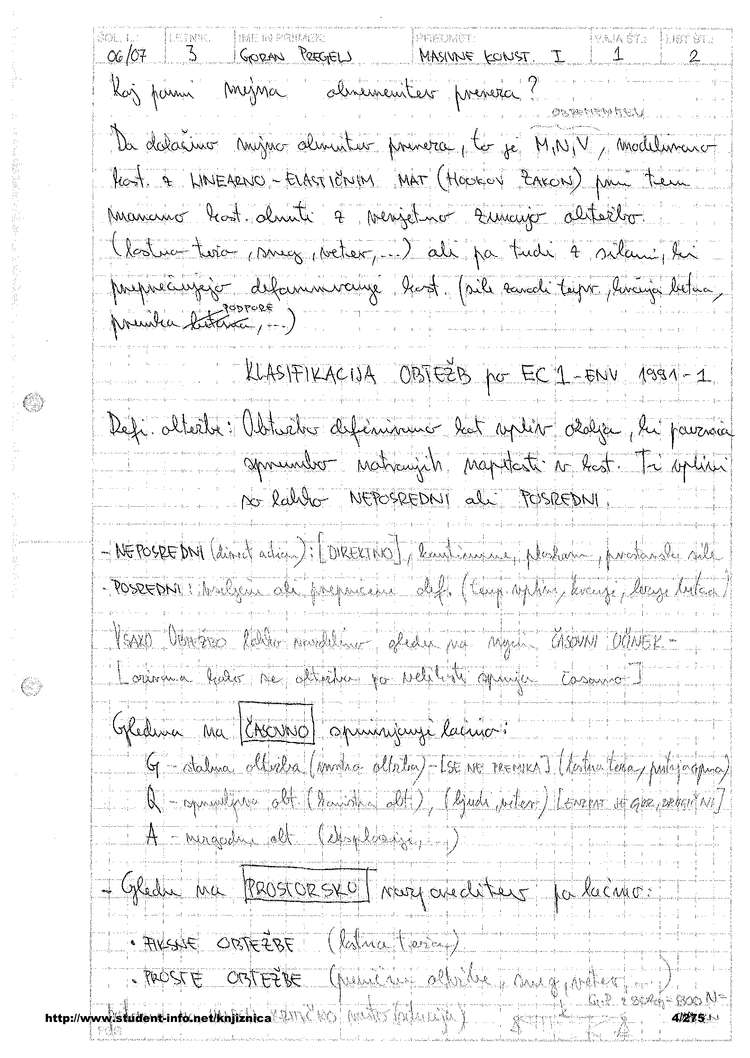 ŠOL. L.: LETNIK: IME IN PRIIMEK: PREDMET: VAJA ŠT.: LIST ŠT.:
06/07 3 GORAN PREGELJ MASIVNE KONST. I 1 2
Kaj pomni mejna obremenitev prereza?
OBREMENITEV
Da določimo mejno obremenitev prereza, to je M,N,V, modeliramo
kost. z LINEARNO-ELASTIČNIM MAT (HOOKOV ZAKON) pri tem
moramo kost. obnuti z verjetno zunanjo obtežbo.
(lastna teža, sneg, veter,...) ali pa tudi z silami, ki
preprečujejo deformiranje kost. (sile zaradi temp., krčenja betona,
PODPORE
premika ,...)
KLASIFIKACIJA OBTEŽB po EC 1-ENV 1991-1
Defi. obtežbe: Obtežbo definiramo kot vpliv okolja, ki povzroča
spremembo notranjih napetosti v kost. Ti vplivi
so lahko NEPOSREDNI ali POSREDNI.
- NEPOSREDNI (direct action): [DIREKTNO], ploskovne, prostorske sile
- POSREDNI: vsiljene ali preprečene def. (temp. vplivi, krčenje, lezenje betona)
VSAKO OBTEŽBO lahko razdelimo glede na njen ČASOVNI UČINEK -
[oziroma kako se obtežba po velikosti spreminja časovno]
Glede na ČASOVNO spreminjanje ločimo:
G - stalna obtežba (mrtva obtežba) - [SE NE PREMIKA] (lastna teža, )
Q - spremenljiva obt. (koristna obt.), (ljudje, veter) [ENKRAT JE GOR, DRUGIČ NI]
A - nezgodne obt. (eksplozije,...)
- Glede na PROSTORSKO razporeditev pa ločimo:
• FIKSNE OBTEŽBE (lastna teža)
• PROSTE OBTEŽBE (premične obtežbe, sneg, veter,...)
http://www.student-info.net/knjiznica 4/275